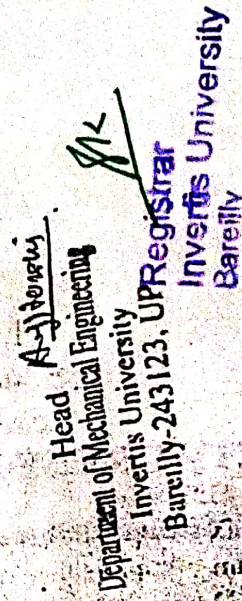 Head
Department of Mechanical Engineering
Invertis University
Bareilly-243123, UP
Registrar
Invertis University
Bareilly